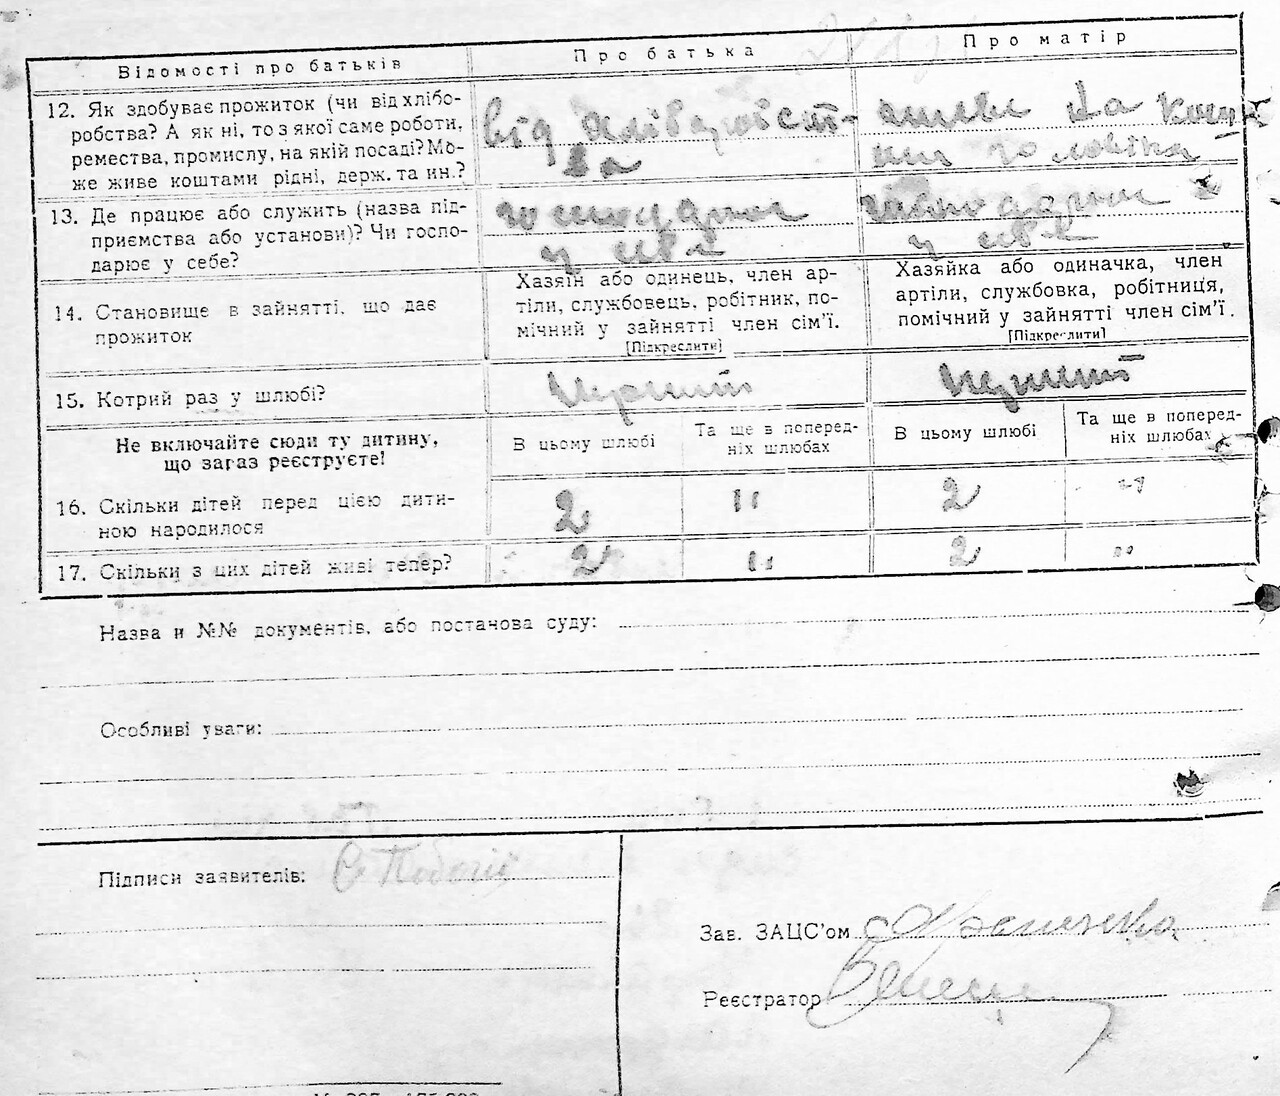 Відомості про батьків
Про батька
Про матір
12. Як здобуває прожиток (чи від хлібо-
робства? А як ні, то з якої саме роботи,
ремества, промислу, на якій посаді? Мо-
же живе коштами рідні, держ. та ин.?
від хліборобст-
ва
живе на кош-
ти чоловіка
13. Де працює або служить (назва під-
приємства або установи)? Чи госпо-
дарює у себе?
господарює
у себе
господарює
у себе
14. Становище в зайнятті, що дає
прожиток
Хазяїн або одинець, член ар-
тіли, службовець, робітник, по-
мічний у зайнятті член сім'ї.
[Підкреслити]
Хазяйка або одиначка, член
артіли, службовка, робітниця,
помічний у зайнятті член сім'ї.
[Підкреслити]
15. Котрий раз у шлюбі?
Перший
Перший
Не включайте сюди ту дитину,
що зараз реєструєте!
В цьому шлюбі
Та ще в поперед-
ніх шлюбах
В цьому шлюбі
Та ще в поперед-
ніх шлюбах
16. Скільки дітей перед цією дити-
ною народилося
2 " 2 "
17. Скільки з цих дітей живі тепер?
2 " 2 "
Назва и №№ документів, або постанова суду:
Особливі уваги:
Підписи заявителів:
Зав. ЗАЦС'ом
Реєстратор